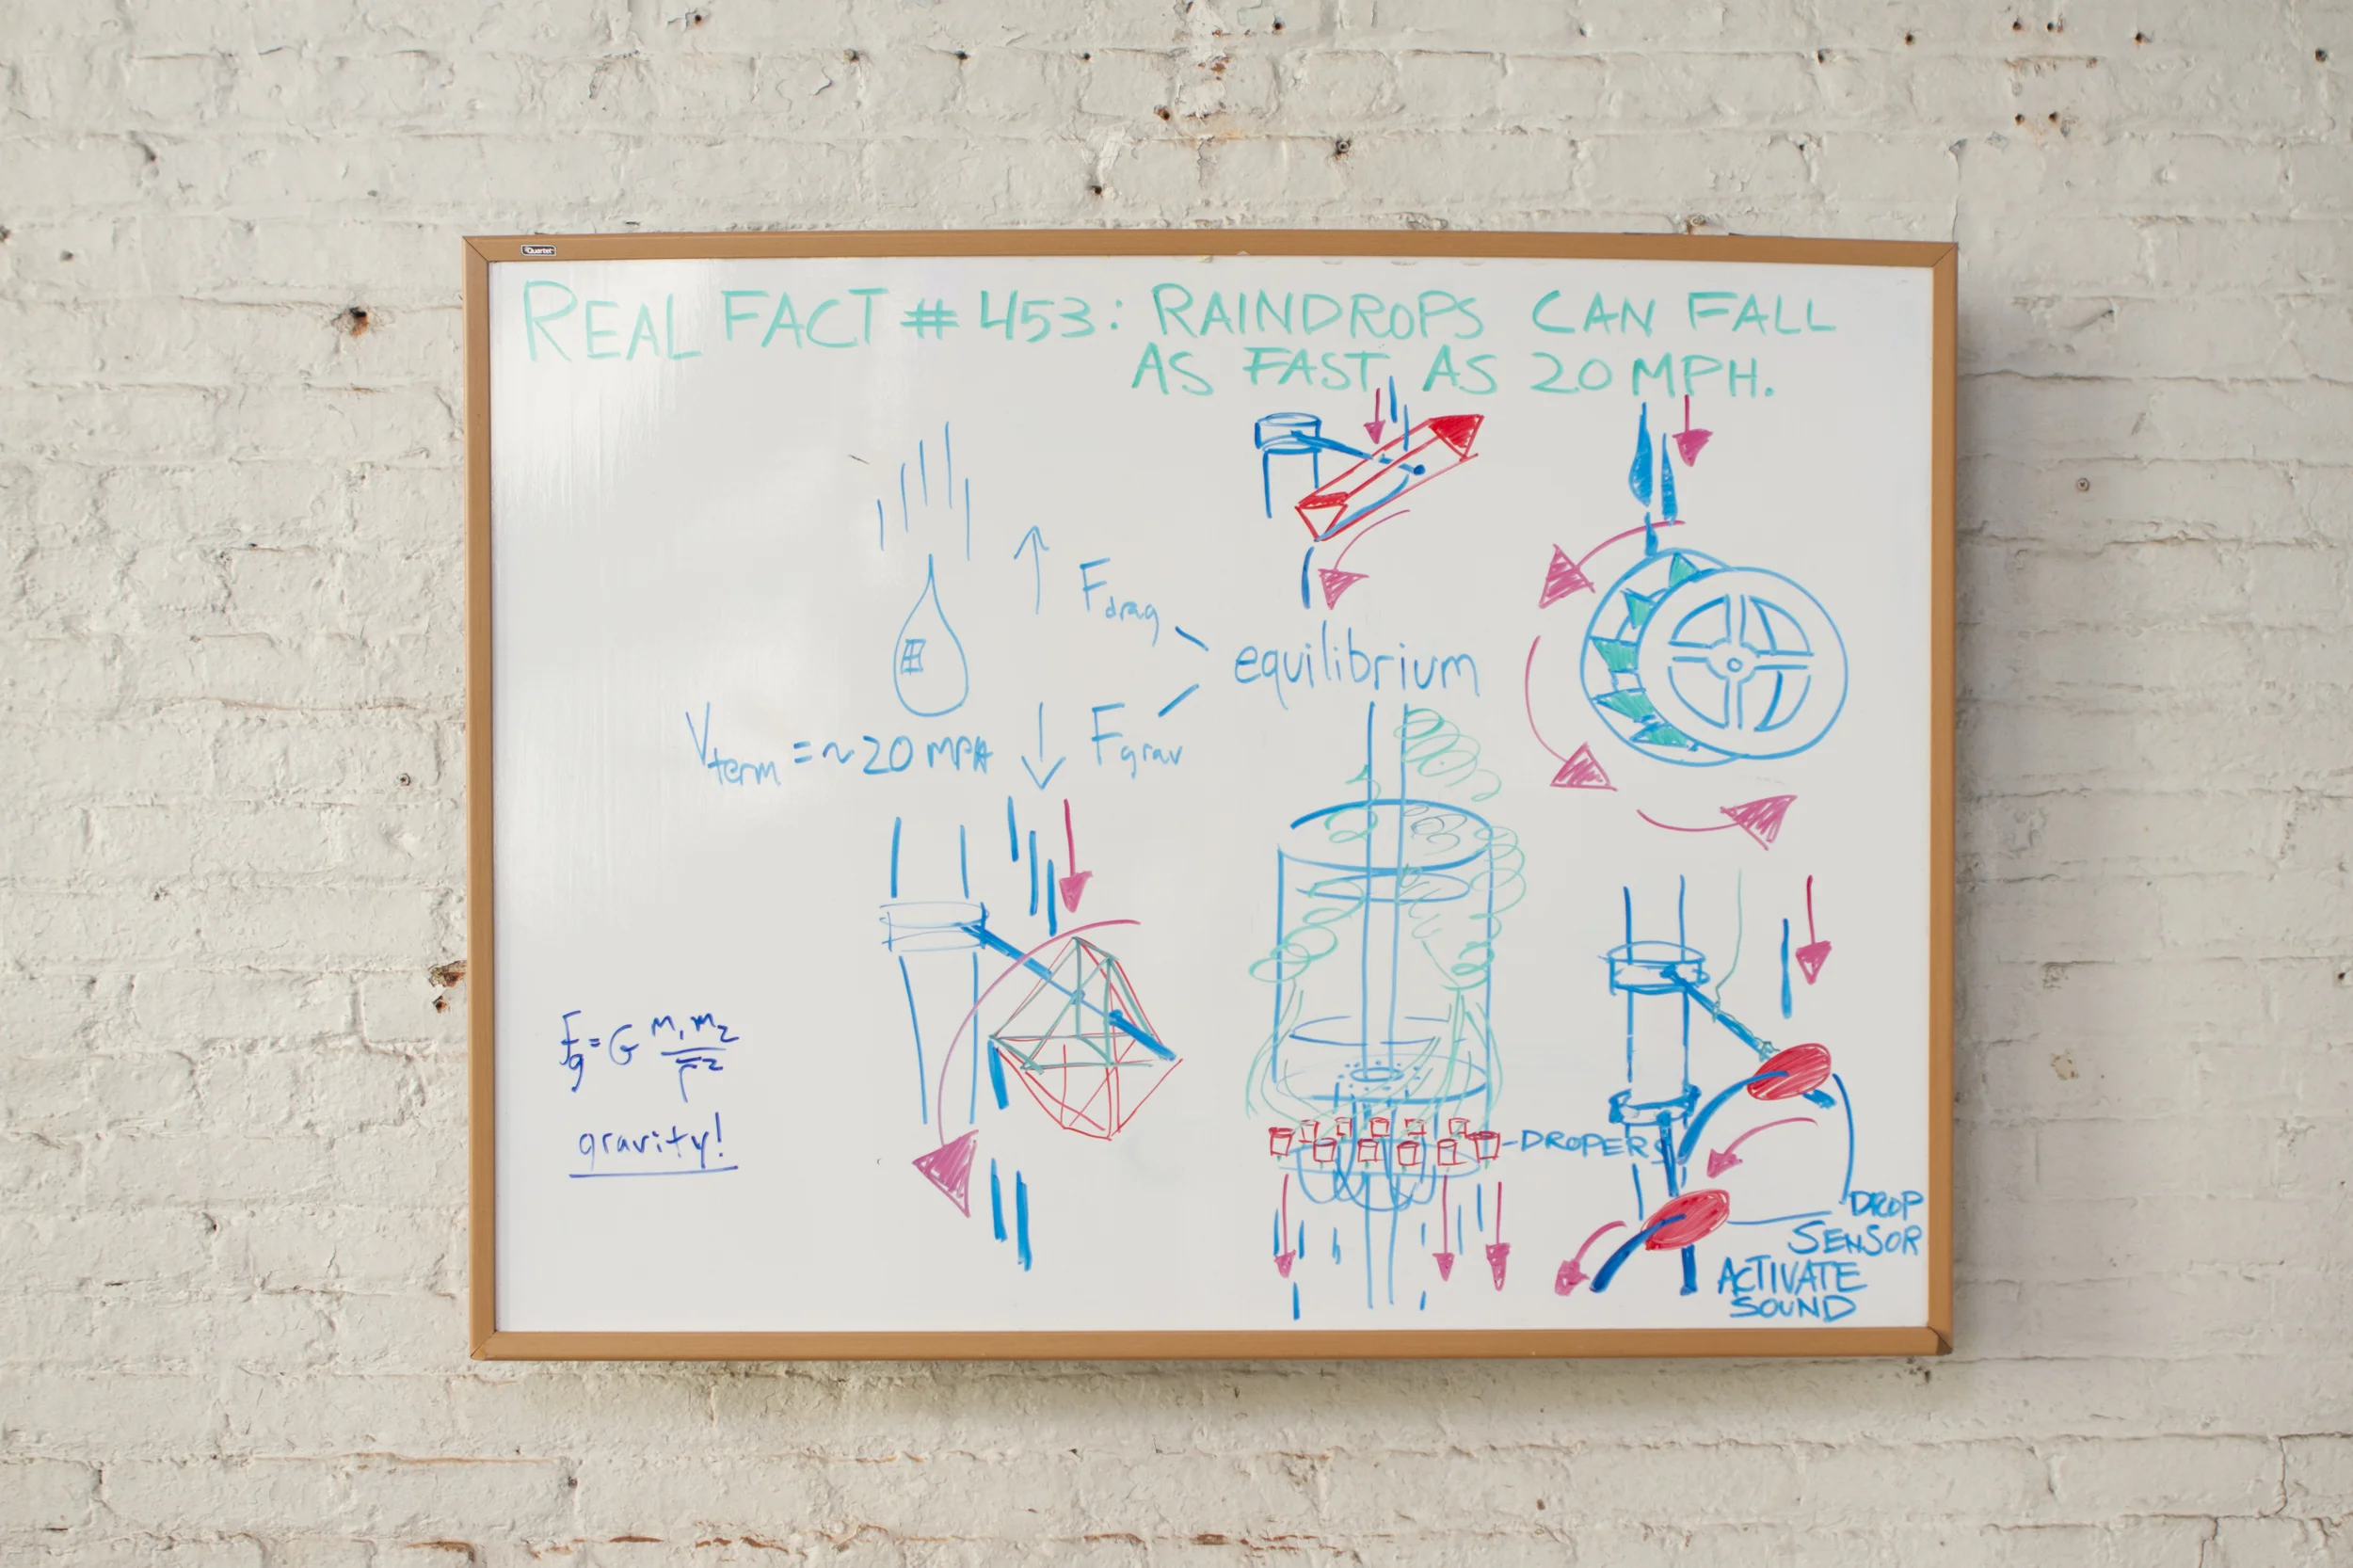 Quartet
REAL FACT # 453: RAINDROPS CAN FALL
AS FAST AS 20 MPH.
Fdrag
equilibrium
Vterm = ~20 MPH
Fgrav
Fg = G m1 m2 / r2
gravity!
DROPERS
DROP
SENSOR
ACTIVATE
SOUND